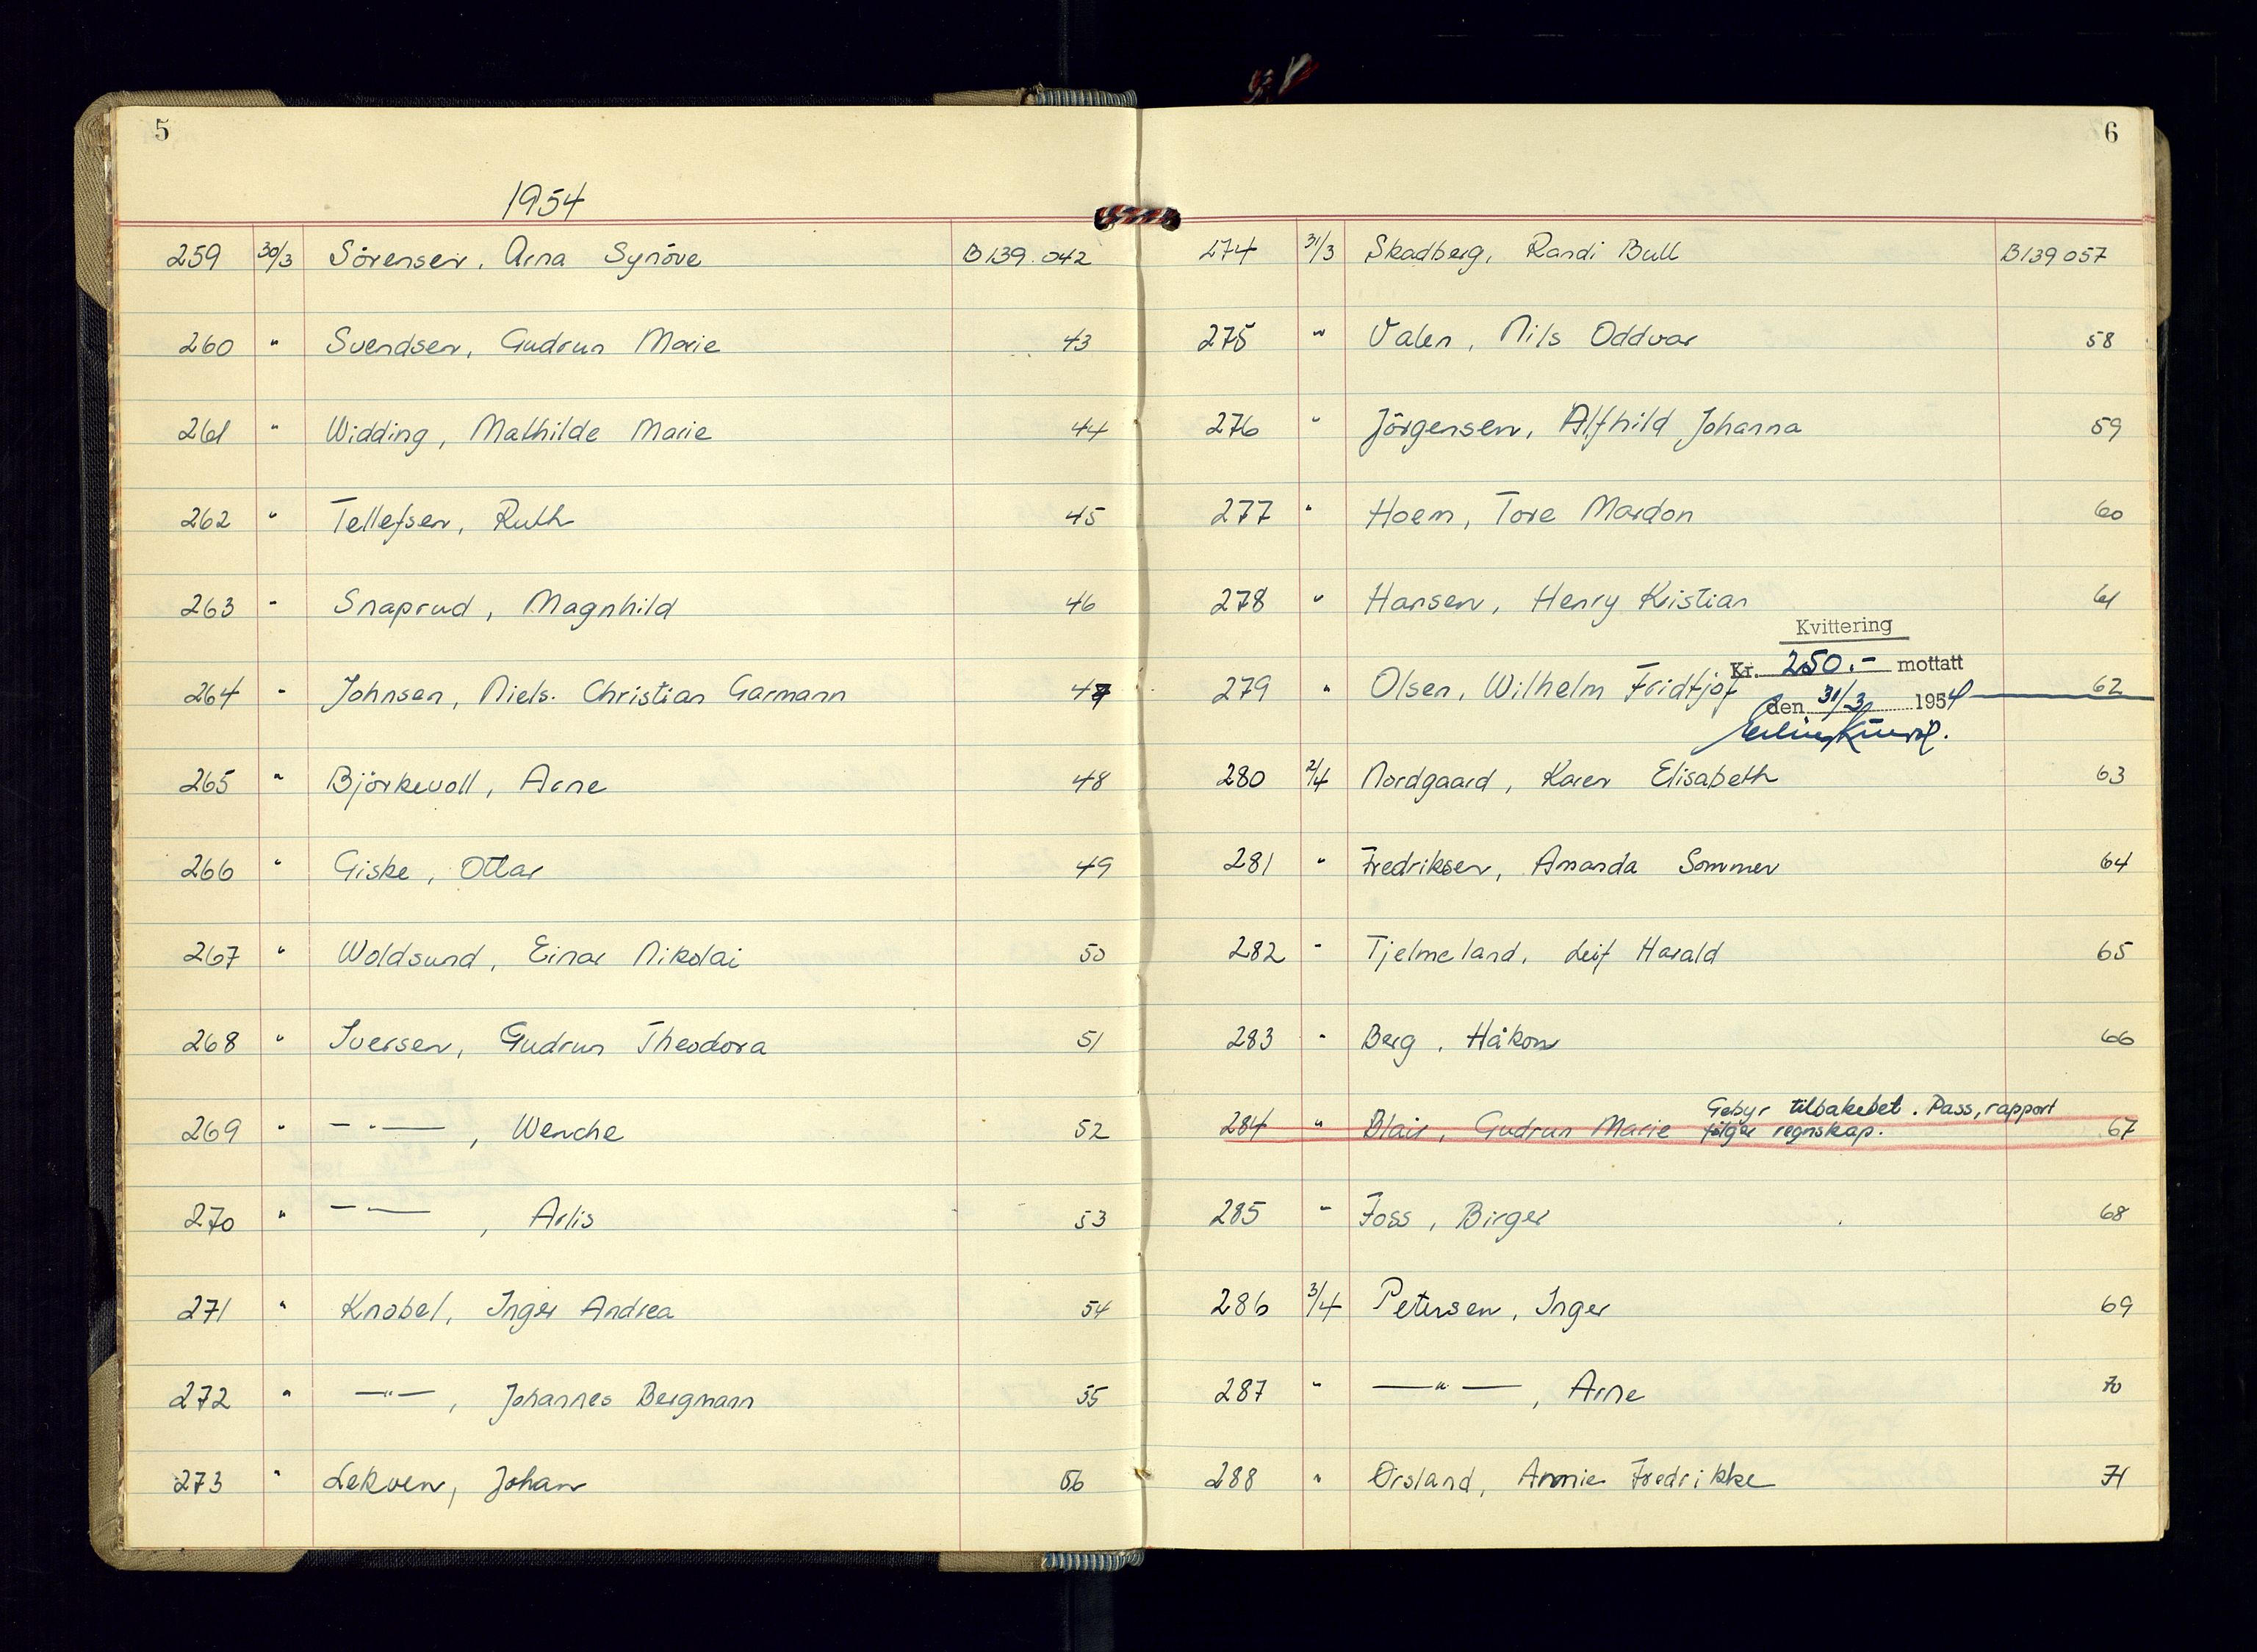 5
1954
259 30/3 Sörensen, Arna Synöve B 139.042
260 " Svendsen, Gudrun Marie 43
261 " Widding, Mathilde Marie 44
262 " Tellefsen, Ruth 45
263 " Snaprud, Magnhild 46
264 " Johnsen, Niels. Christian Garmann 47
265 " Björkevoll, Arne 48
266 " Giske, Ottar 49
267 " Woldsund, Einar Nikolai 50
268 " Iversen, Gudrun Theodora 51
269 " — " —, Wenche 52
270 " — " —, Arlis 53
271 " Knobel, Inger Andrea 54
272 " — " —, Johannes Bergmann 55
273 " Lekven, Johan 56
6
274 31/3 Skadberg, Randi Bull B 139 057
275 " Valen, Nils Oddvar 58
276 " Jörgensen, Alfhild Johanna 59
277 " Hoem, Tore Mardon 60
278 " Hansen, Henry Kristian 61
Kvittering
Kr. 250.- mottatt
279 " Olsen, Wilhelm Fridtjof 62
den 31/3 1954
280 2/4 Nordgaard, Karen Elisabeth 63
281 " Fredriksen, Amanda Sommer 64
282 " Tjelmeland, Leif Harald 65
283 " Berg, Håkon 66
Gebyr tilbakebet. Pass, rapport
284 " Blair, Gudrun Marie følger regnskap. 67
285 " Foss, Birger 68
286 3/4 Petersen, Inger 69
287 " — " —, Arne 70
288 " Örsland, Annie Fredrikke 71